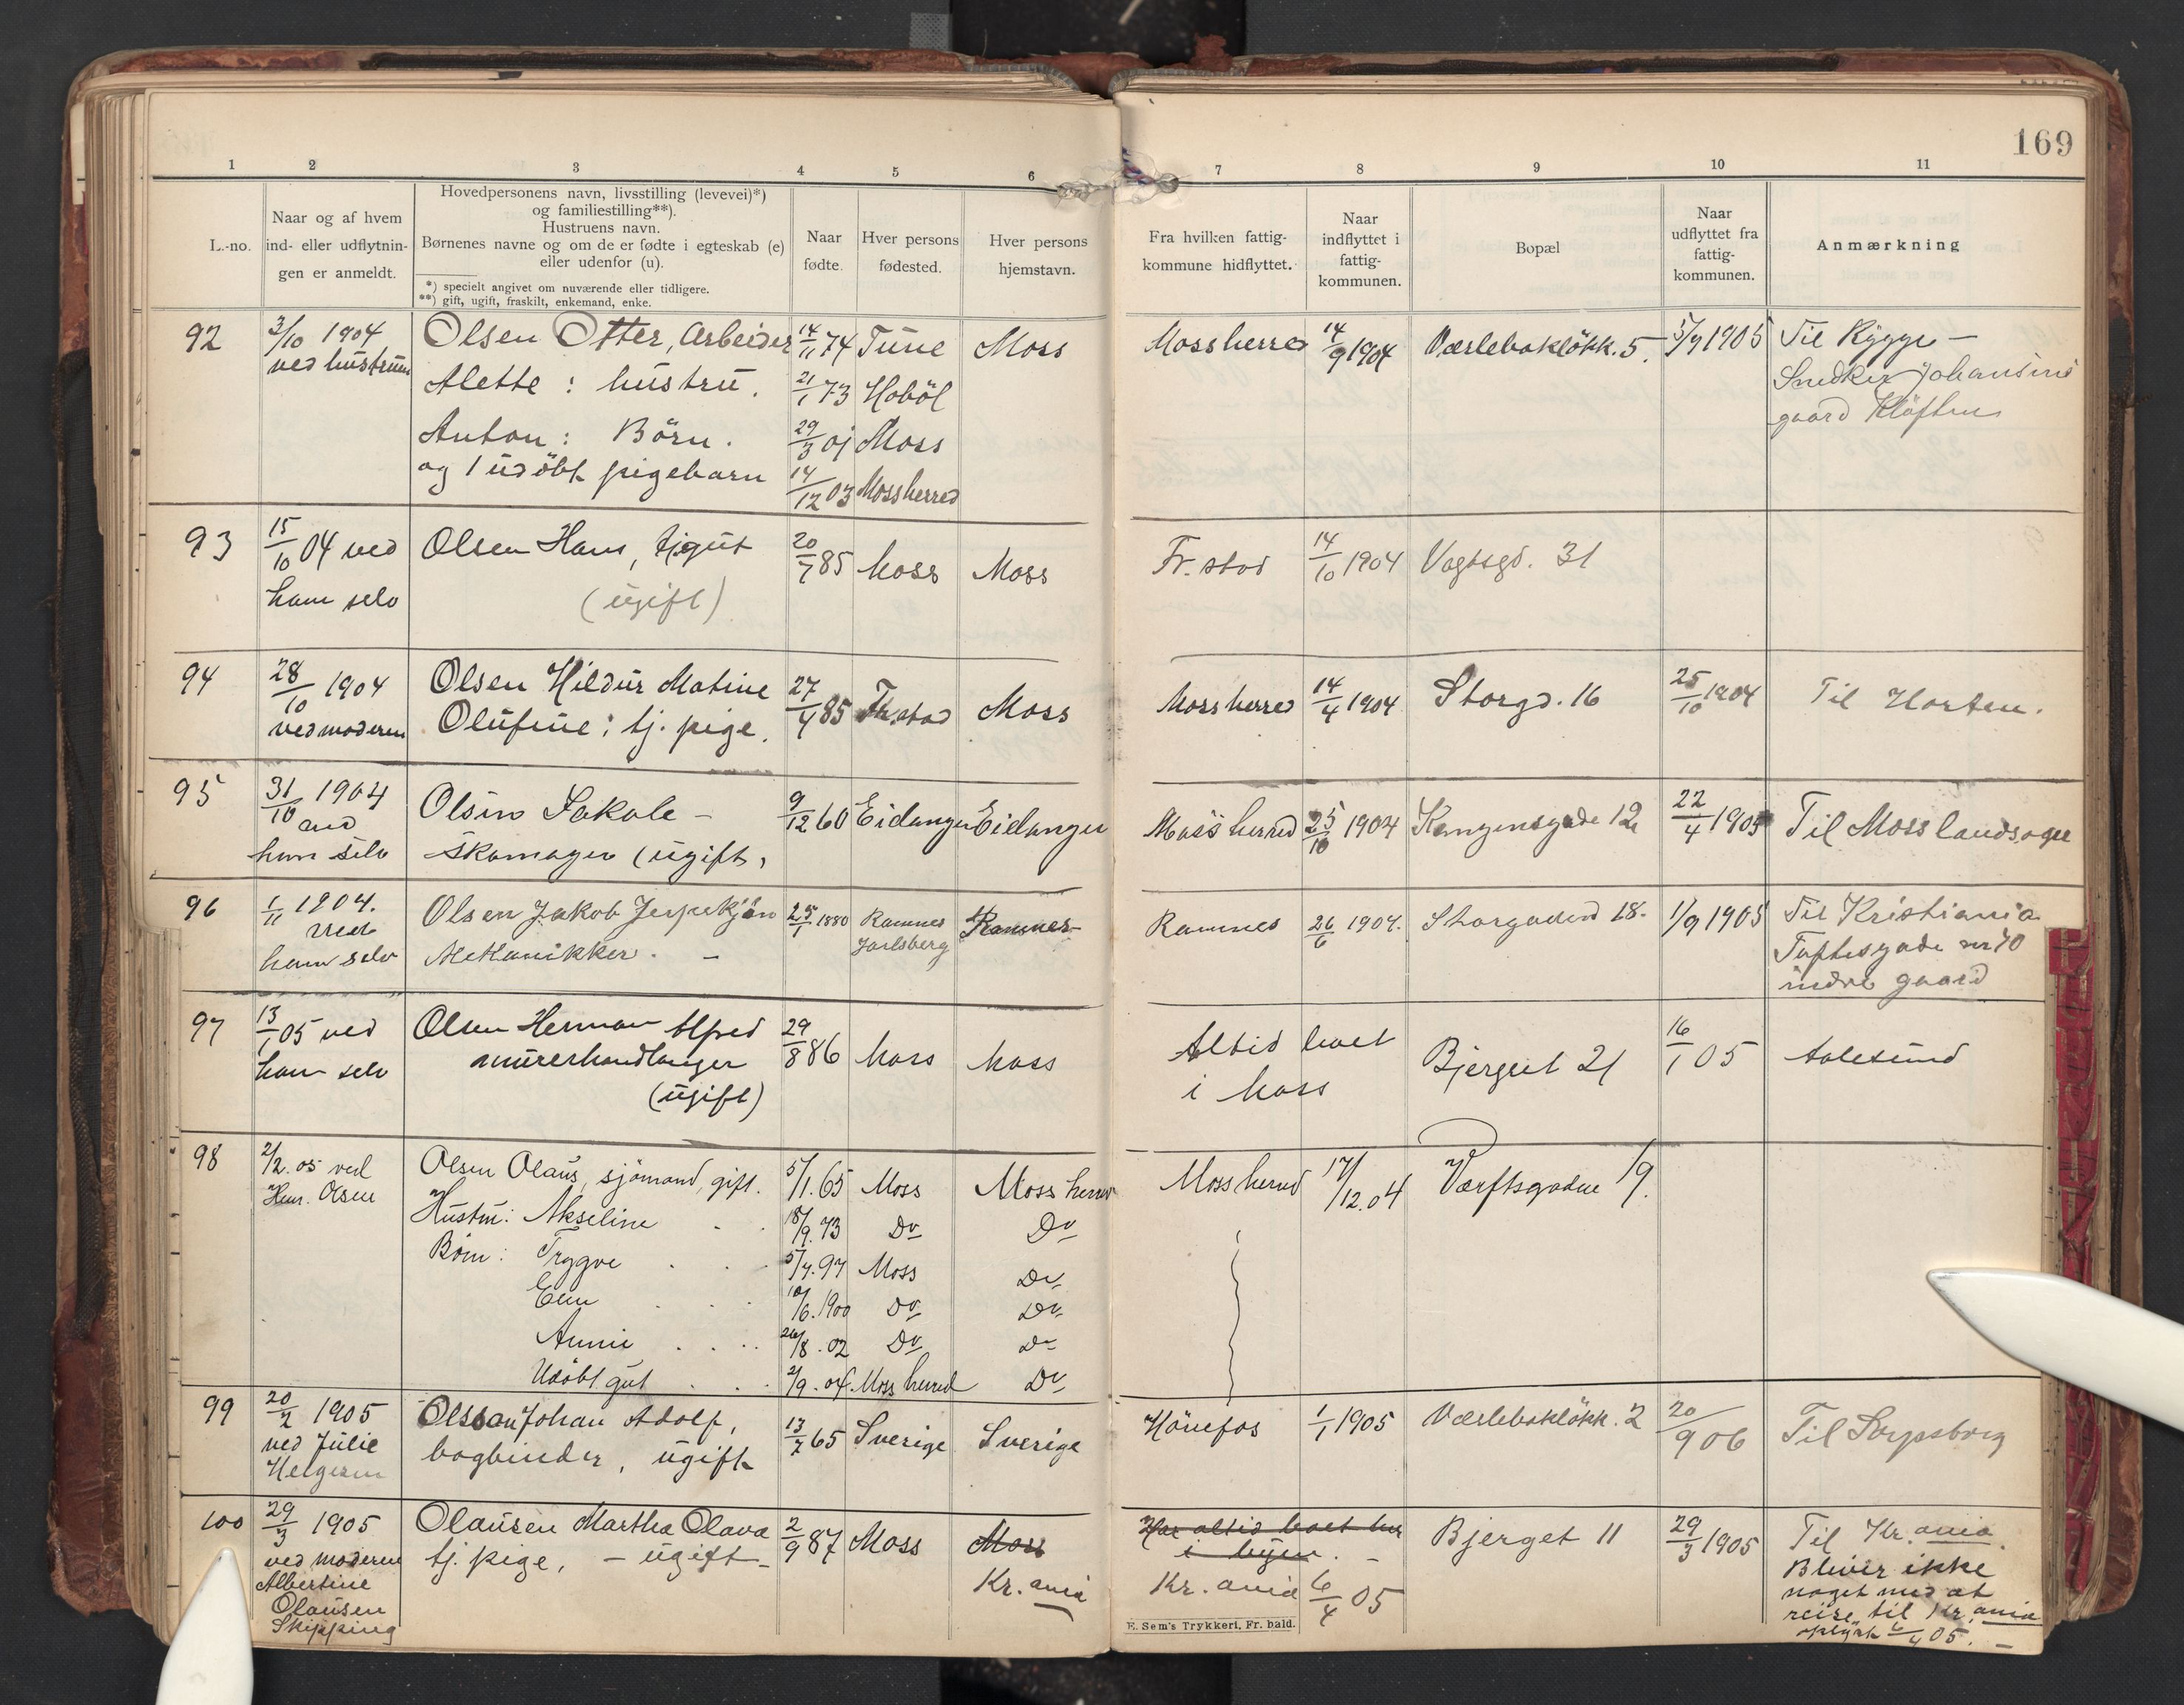 169
1 2 3 4 5 6 7 8 9 10 11
L.-no.
Naar og af hvem
ind- eller udflytnin-
gen er anmeldt.
Hovedpersonens navn, livsstilling (levevei)*)
og familiestilling**).
Hustruens navn.
Børnenes navne og om de er fødte i egteskab (e)
eller udenfor (u).
*) specielt angivet om nuværende eller tidligere.
**) gift, ugift, fraskilt, enkemand, enke.
Naar
fødte.
Hver persons
fødested.
Hver persons
hjemstavn.
Fra hvilken fattig-
kommune hidflyttet.
Naar
indflyttet i
fattig-
kommunen.
Bopæl
Naar
udflyttet fra
fattig-
kommunen.
Anmærkning
92
3/10 1904
ved hustruen
Olsen Otter, Arbeider 14/11 74 Tune Moss
Alette : hustru. 21/1 73 Hoböl
Anton : Börn. 29/3 01 Moss
og 1 udöbt pigebarn 14/12 03 Mossherred
Mossherred 14/9 1904 Værlebaklökk. 5. 5/9 1905 Til Rygge –
Snedker Johansens
gaard Klöften
93
15/10 04 ved
ham selv
Olsen Hans, tjgut 20/7 85 Moss Moss
(ugift)
Fr.stad 14/10 1904 Vogtsgd. 31
94
28/10 1904
ved moderen
Olsen Hildur Matine 27/4 85 Fr.stad Moss
Olufine : tj. pige.
Mossherred 14/4 1904 Storgd. 16 25/10 1904 Til Horten.
95
31/10 1904
ham selv
Olsen –
Skomager (ugift, 9/12 60 Eidanger Eidanger
Moss herred 25/10 1904 Kongensgade 12 22/4 1905 Til Moss landsogn
96
1/11 1904.
ved
ham selv
Olsen Jakob 25/1 1880 Ramnes Ramnes
Mekanikker. – Jarlsberg
Ramnes 26/6 1904. Storgaden 18. 1/9 1905 Til Kristiania
Toftesgade nr 40
indre gaard
97
13/1 05 ved
ham selv
Olsen Herman Alfred 29/8 86 Moss Moss
murerhandlanger
(ugift)
Altid boet
i Moss
Bjerget 21 16/1 05 Aalesund
98
2/2. 05 ved
Olsen
Olsen Olaus, sjömand, gift. 5/1. 65 Moss Moss herred
Hustru: Akseline 18/9. 73 Do Do
Börn: Trygve 5/7. 97 Moss Do
10/6. 1900 Do Do
Annie 26/8. 02 Do Do
Udöbt gut 2/9. 04. Moss herred Do
Moss herred 17/12. 04 Værftsgaden 19.
99
20/2 1905
ved Julie
Helgesen
Olsson Johan Adolf, 13/7 65 Sverige Sverige
bogbinder, ugift
Hönefos 1/1 1905 Værlebaklökk. 2 20/9 06 Til Sarpsborg
100
29/3 1905
ved moderen
Albertine
Olausen
Skipping
Olausen Martha Olava 2/9 87 Moss Moss
tj. pige, – ugift – Kr.ania
Har altid boet her
i byen. –
Kr.ania 6/4 05
Bjerget 11 29/3 1905 Til Kr.ania.
Bliver ikke
noget med at
reise til Kr.ania
oplyst 6/4 05. –
E. Sem's Trykkeri, Fr. hald.